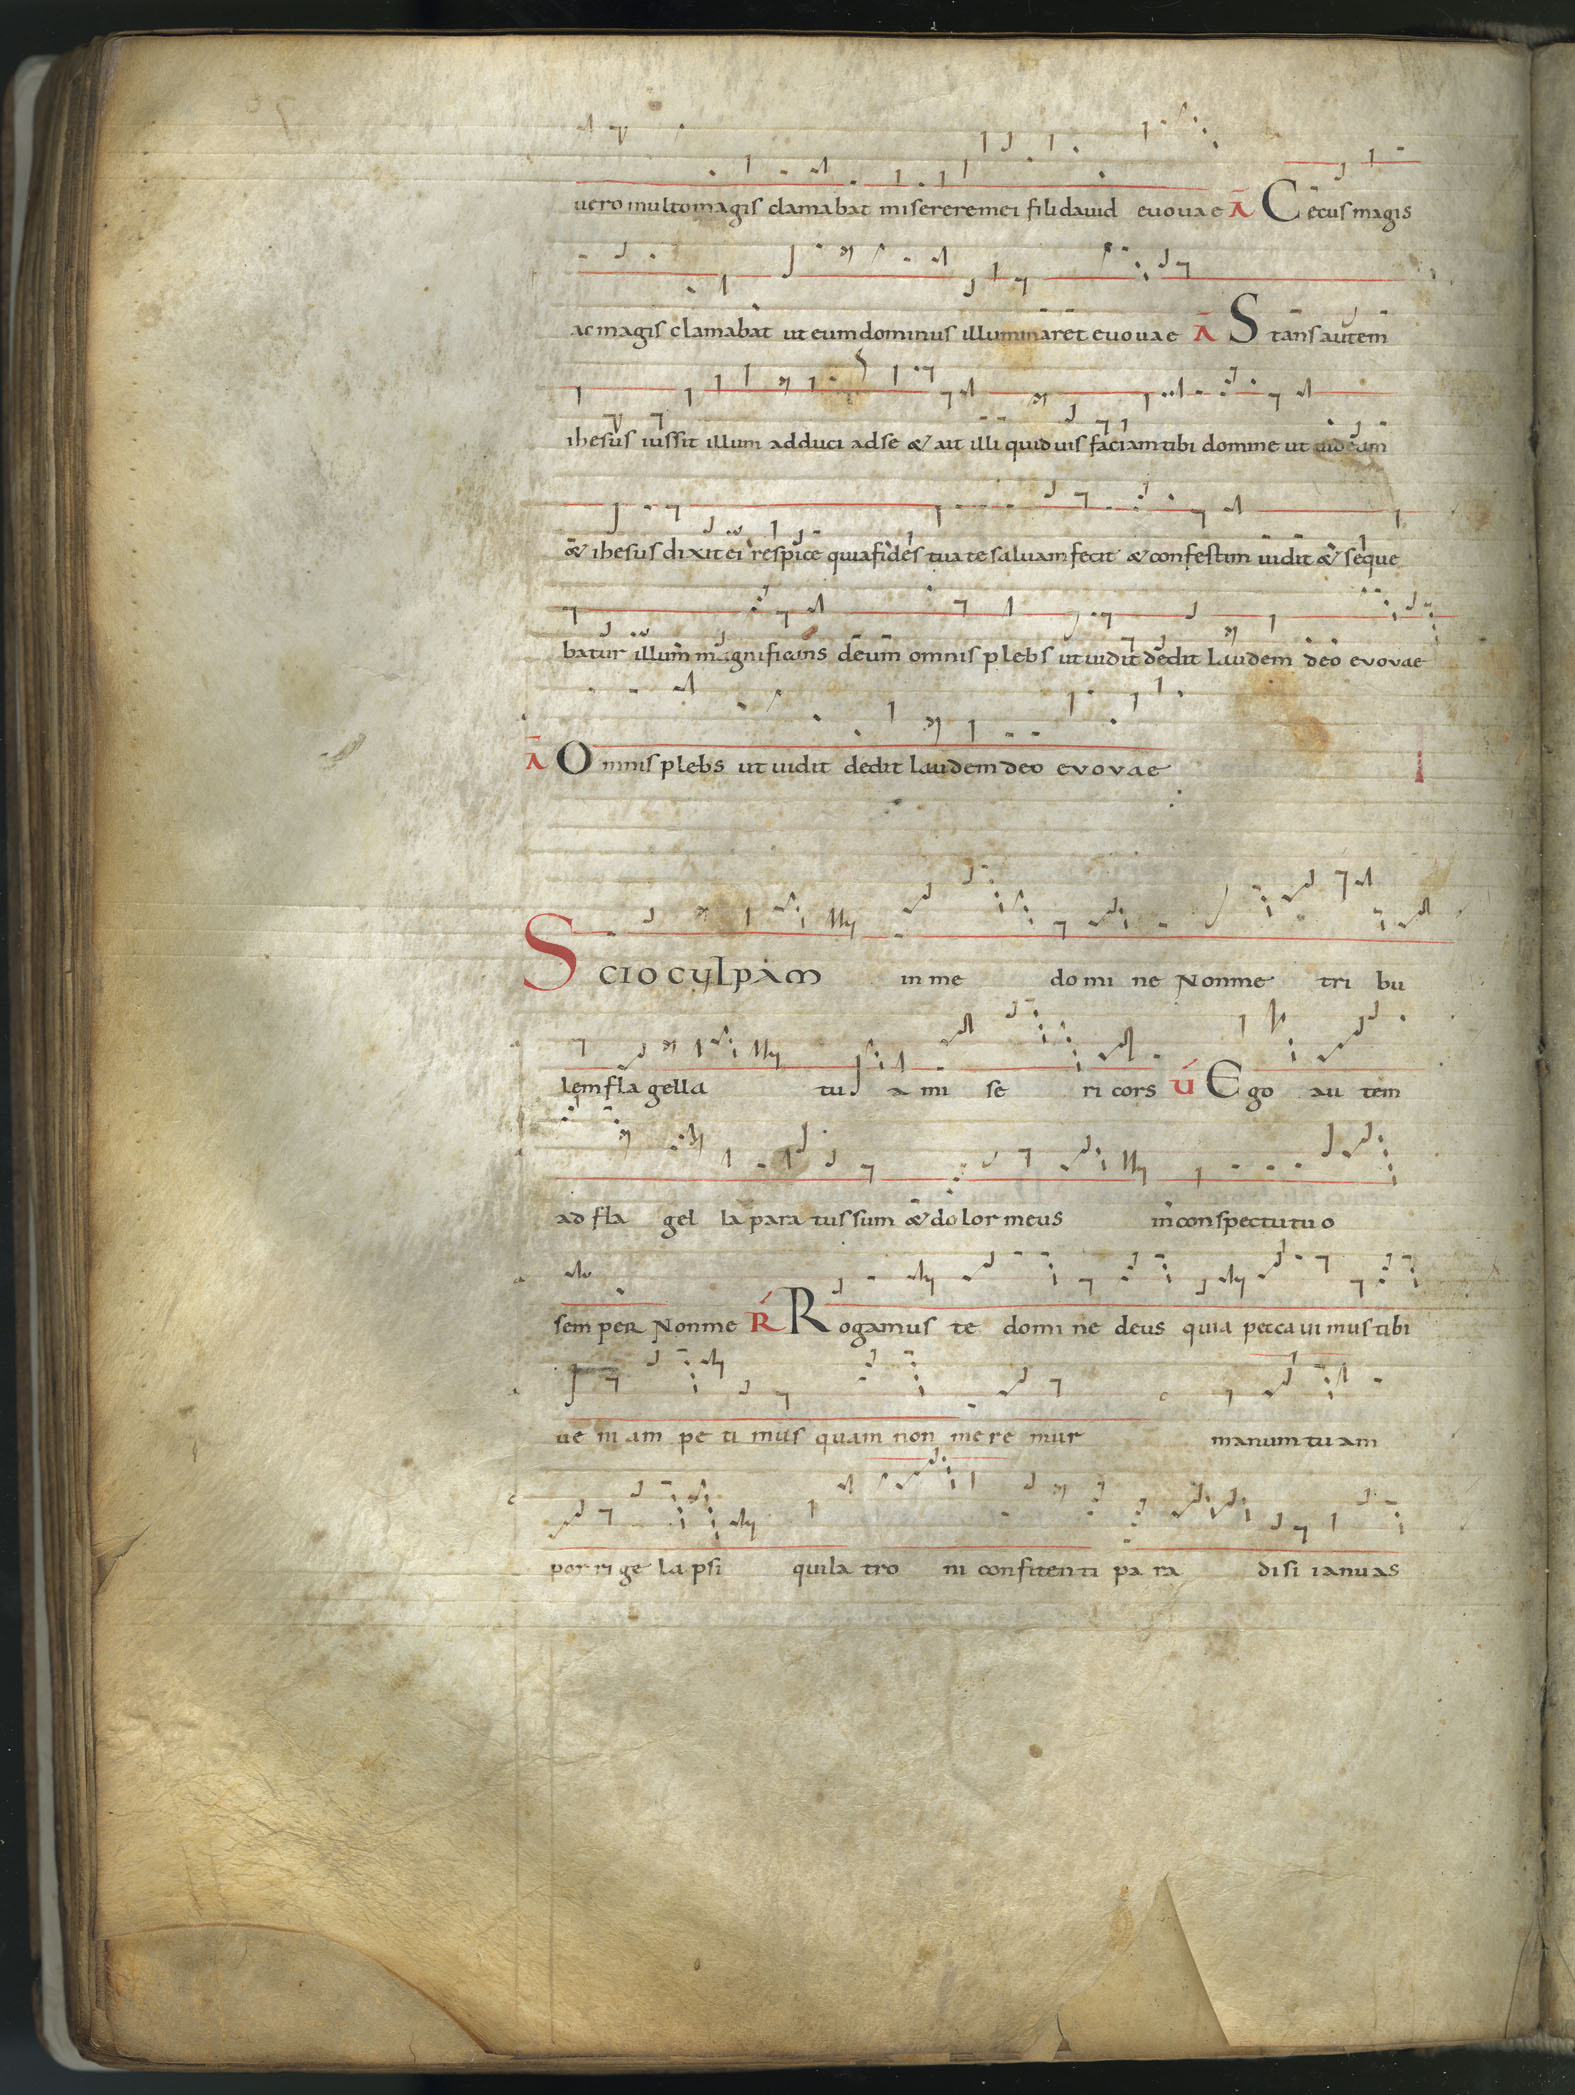 uero multo magis clamabat miserere mei fili dauid euouae A Cecus magis
ac magis clamabat ut eum dominus illuminaret euouae A Stans autem
ihesus iussit illum adduci ad se & ait illi quid uis faciam tibi domine ut uideam
& ihesus dixit ei respice quia fides tua te saluam fecit & confestim uidit & seque
batur illum magnificans deum omnis plebs ut uidit dedit laudem deo evovae
A Omnis plebs ut uidit dedit laudem deo evovae I
SCIO CULPAM in me do mi ne Non me tri bu
lem fla gella tu a mi se ri cors V Ego au tem
ad fla gel la para tus sum & dolor meus in conspectu tuo
semper Non me R Rogamus te domi ne deus quia peccaui mus tibi
ue ni am pe ti mus quam non mere mur manum tu am
por ri ge la psi qui la tro ni confitenti pa ra disi ianuas